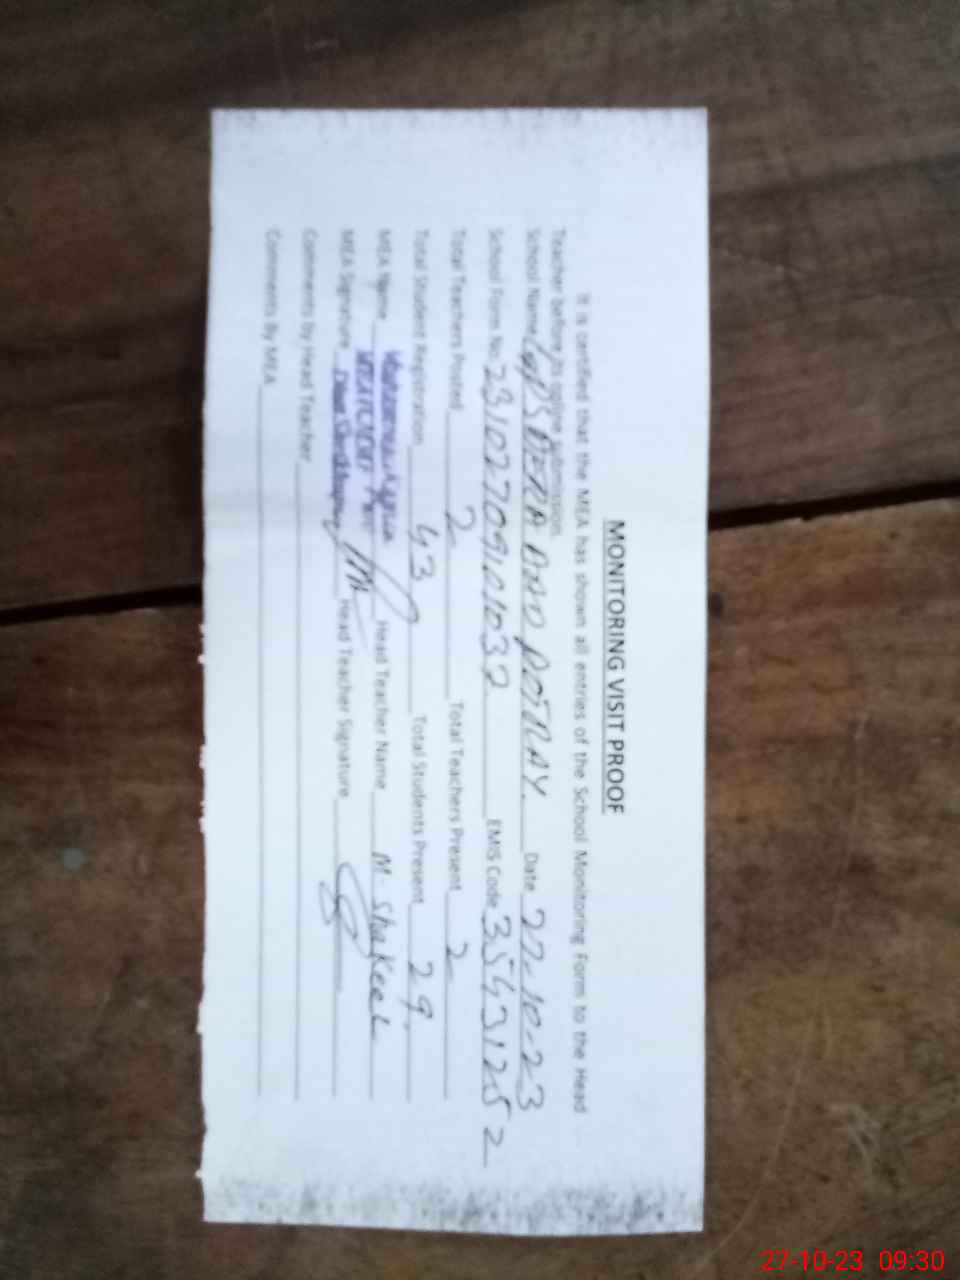 MONITORING VISIT PROOF
It is certified that the MEA has shown all entries of the School Monitoring Form to the Head
Teacher before its online submission.
School Name GPS DERA DAD POTRAY Date 27-10-23
School Form No: 23102709101037 EMIS Code 35431252
Total Teachers Posted 2 Total Teachers Present 2
Total Student Registration 43 Total Students Present 29.
MEA Name Head Teacher Name M. Shakeel
MEA Signature Head Teacher Signature
Comments by Head Teacher
Comments By MEA
27-10-23 09:30